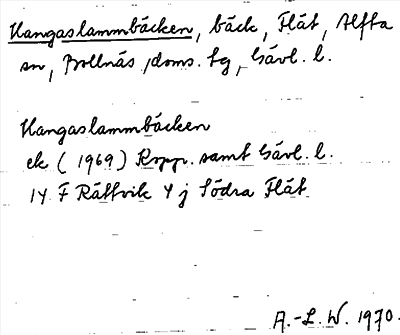 Hangaslammbäcken, bäck, Flåt, Alfta
sn, Bollnäs doms. tg, Gävl. l.
Hangaslammbäcken
ek (1969) Kopp. samt Gävl. l.
14 F Rättvik 4 j Södra Flåt
A.-L. W. 1970.